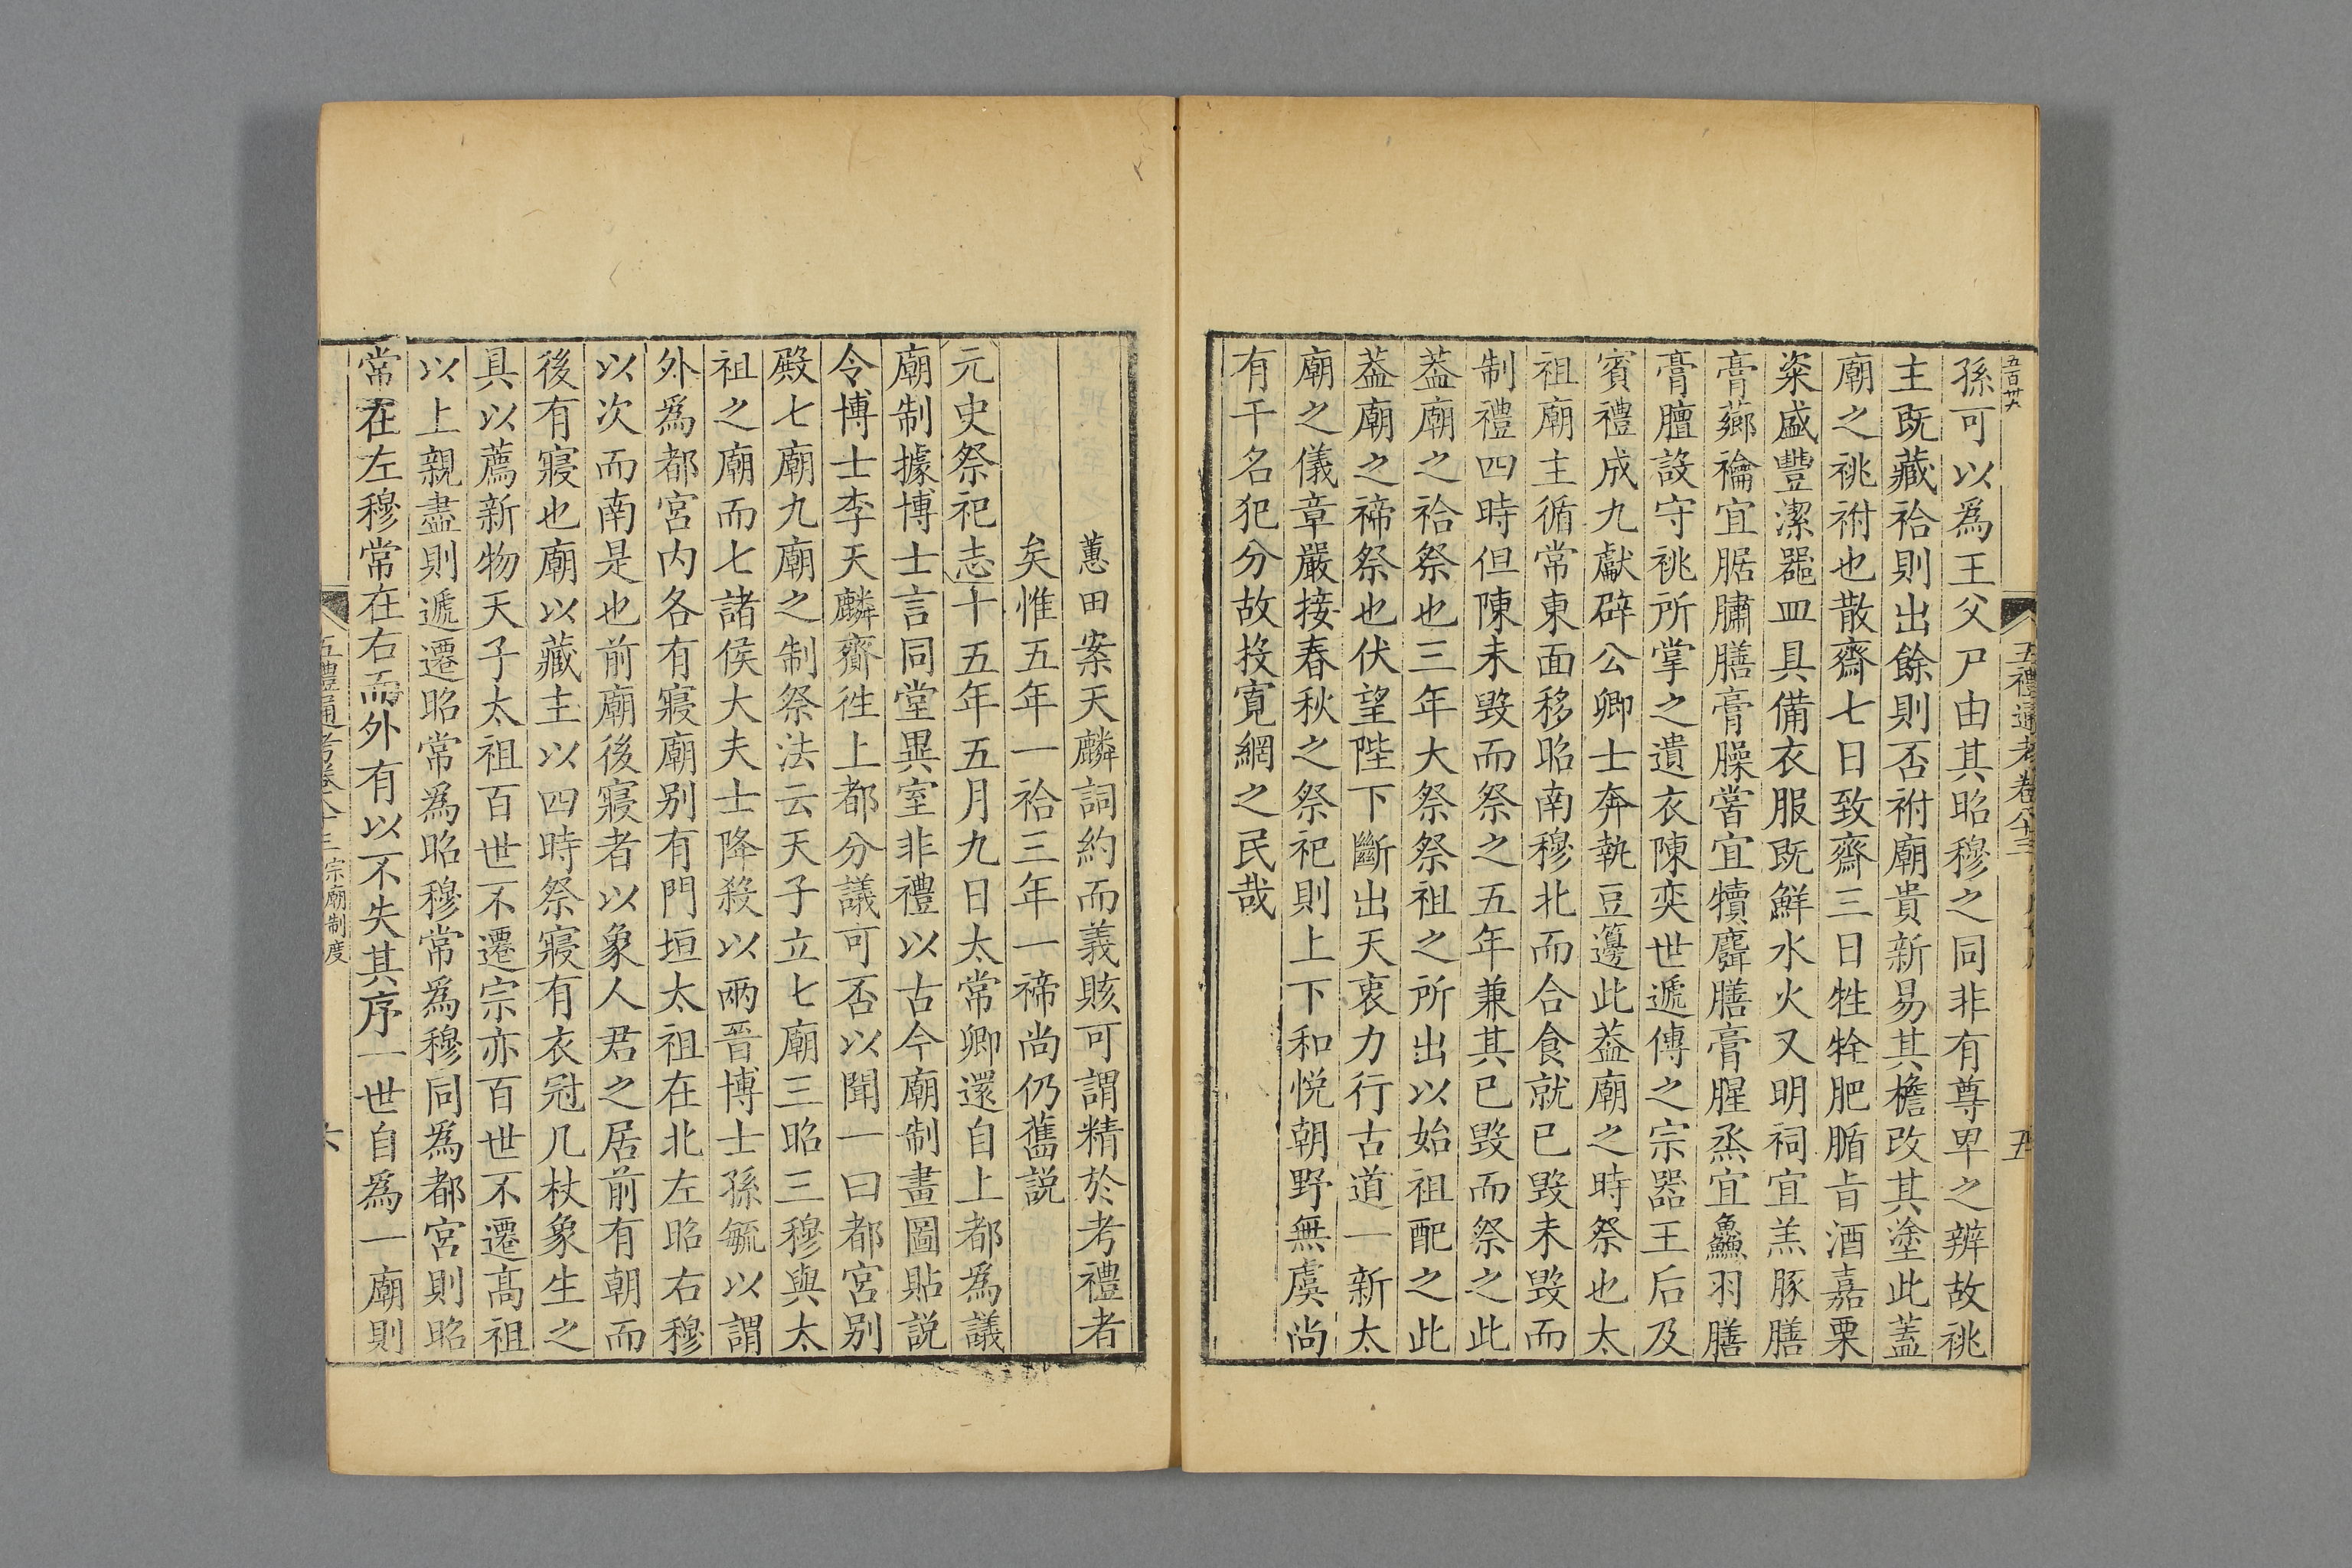 五百卅六
五禮通考卷八十三
五
孫可以爲王父尸由其昭穆之同非有尊卑之辨故祧
主既藏祫則出餘則否祔廟貴新易其檐改其塗此蓋
廟之祧祔也散齋七日致齋三日牲牷肥腯旨酒嘉栗
粢盛豐潔器皿具備衣服既鮮水火又明祠宜羔豚膳
膏薌禴宜腒鱐膳膏臊嘗宜犢麛膳膏腥烝宜鱻羽膳
膏膻設守祧所掌之遺衣陳奕世遞傳之宗器王后及
賓禮成九獻辟公卿士奔執豆籩此葢廟之時祭也太
祖廟主循常東面移昭南穆北而合食就已毀未毀而
制禮四時但陳未毀而祭之五年兼其已毀而祭之此
葢廟之祫祭也三年大祭祭祖之所出以始祖配之此
葢廟之禘祭也伏望陛下斷出天衷力行古道一新太
廟之儀章嚴接春秋之祭祀則上下和悅朝野無虞尚
有干名犯分故投寛網之民哉
蕙田案天麟詞約而義賅可謂精於考禮者
矣惟五年一祫三年一禘尚仍舊説
元史祭祀志十五年五月九日太常卿還自上都爲議
廟制據博士言同堂異室非禮以古今廟制畫圖貼説
令博士李天麟齎徃上都分議可否以聞一曰都宮別
殿七廟九廟之制祭法云天子立七廟三昭三穆與太
祖之廟而七諸侯大夫士降殺以兩晋博士孫毓以謂
外爲都宮内各有寢廟别有門垣太祖在北左昭右穆
以次而南是也前廟後寢者以象人君之居前有朝而
後有寢也廟以藏主以四時祭寢有衣冠几杖象生之
具以薦新物天子太祖百世不遷宗亦百世不遷髙祖
以上親盡則遞遷昭常爲昭穆常爲穆同爲都宮則昭
常在左穆常在右而外有以不失其序一世自爲一廟則
五禮通考卷八十三 宗廟制度
六